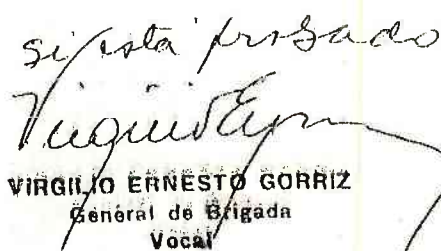 si está probado
VIRGILIO ERNESTO GORRIZ
General de Brigada
Vocal